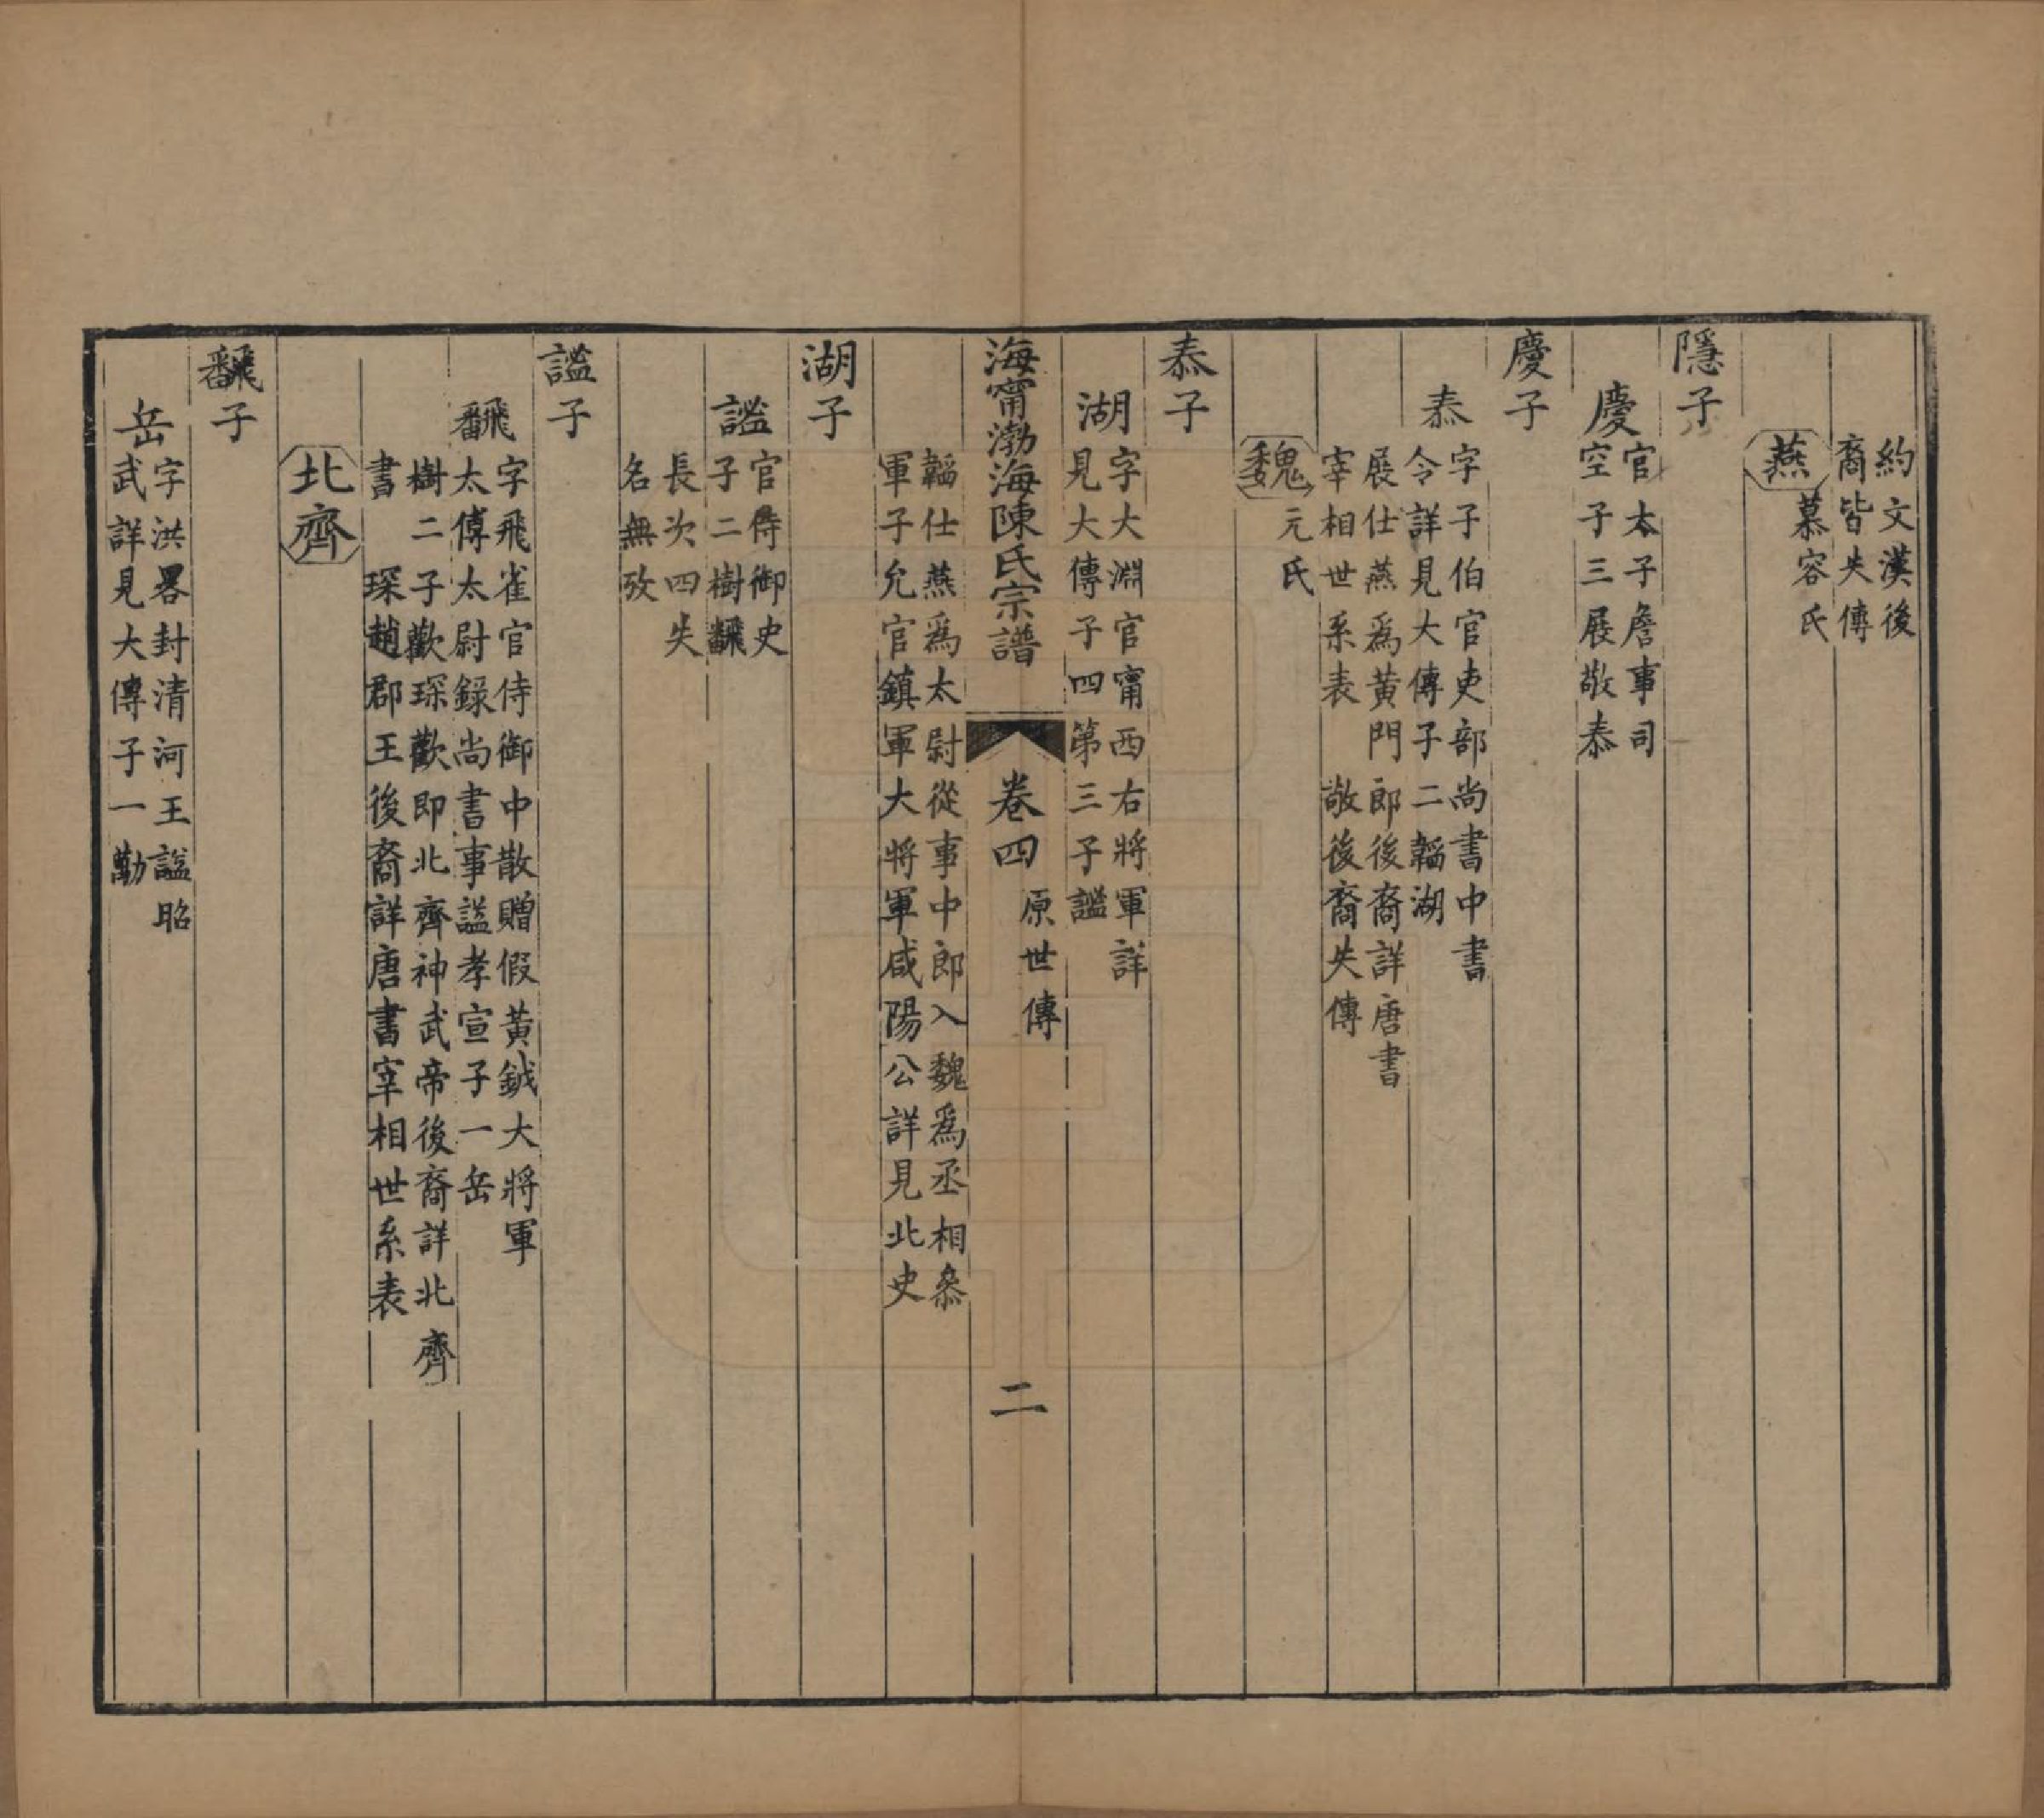 約文漢後
裔皆失傳
燕
慕容氏
隱子
慶
官太子詹事司
空子三展敬泰
慶子
泰
字子伯官吏部尚書中書
令詳見大傳子二韜湖
展仕燕爲黃門郎後裔詳唐書
宰相世系表　敬後裔失傳
魏
元氏
泰子
湖
字大淵官甯西右將軍詳
見大傳子四第三子謐
海甯渤海陳氏宗譜
卷四
原世傳
二
韜仕燕爲太尉從事中郎入魏爲丞相叅
軍子允官鎮軍大將軍咸陽公詳見北史
湖子
謐
官侍御史
子二樹飜
長次四失
名無攷
謐子
飜
字飛雀官侍御中散贈假黃鉞大將軍
太傅太尉録尚書事謚孝宣子一岳
樹二子歡琛歡即北齊神武帝後裔詳北齊
書　琛趙郡王後裔詳唐書宰相世系表
北齊
飜子
岳
字洪畧封清河王謚昭
武詳見大傳子一勱